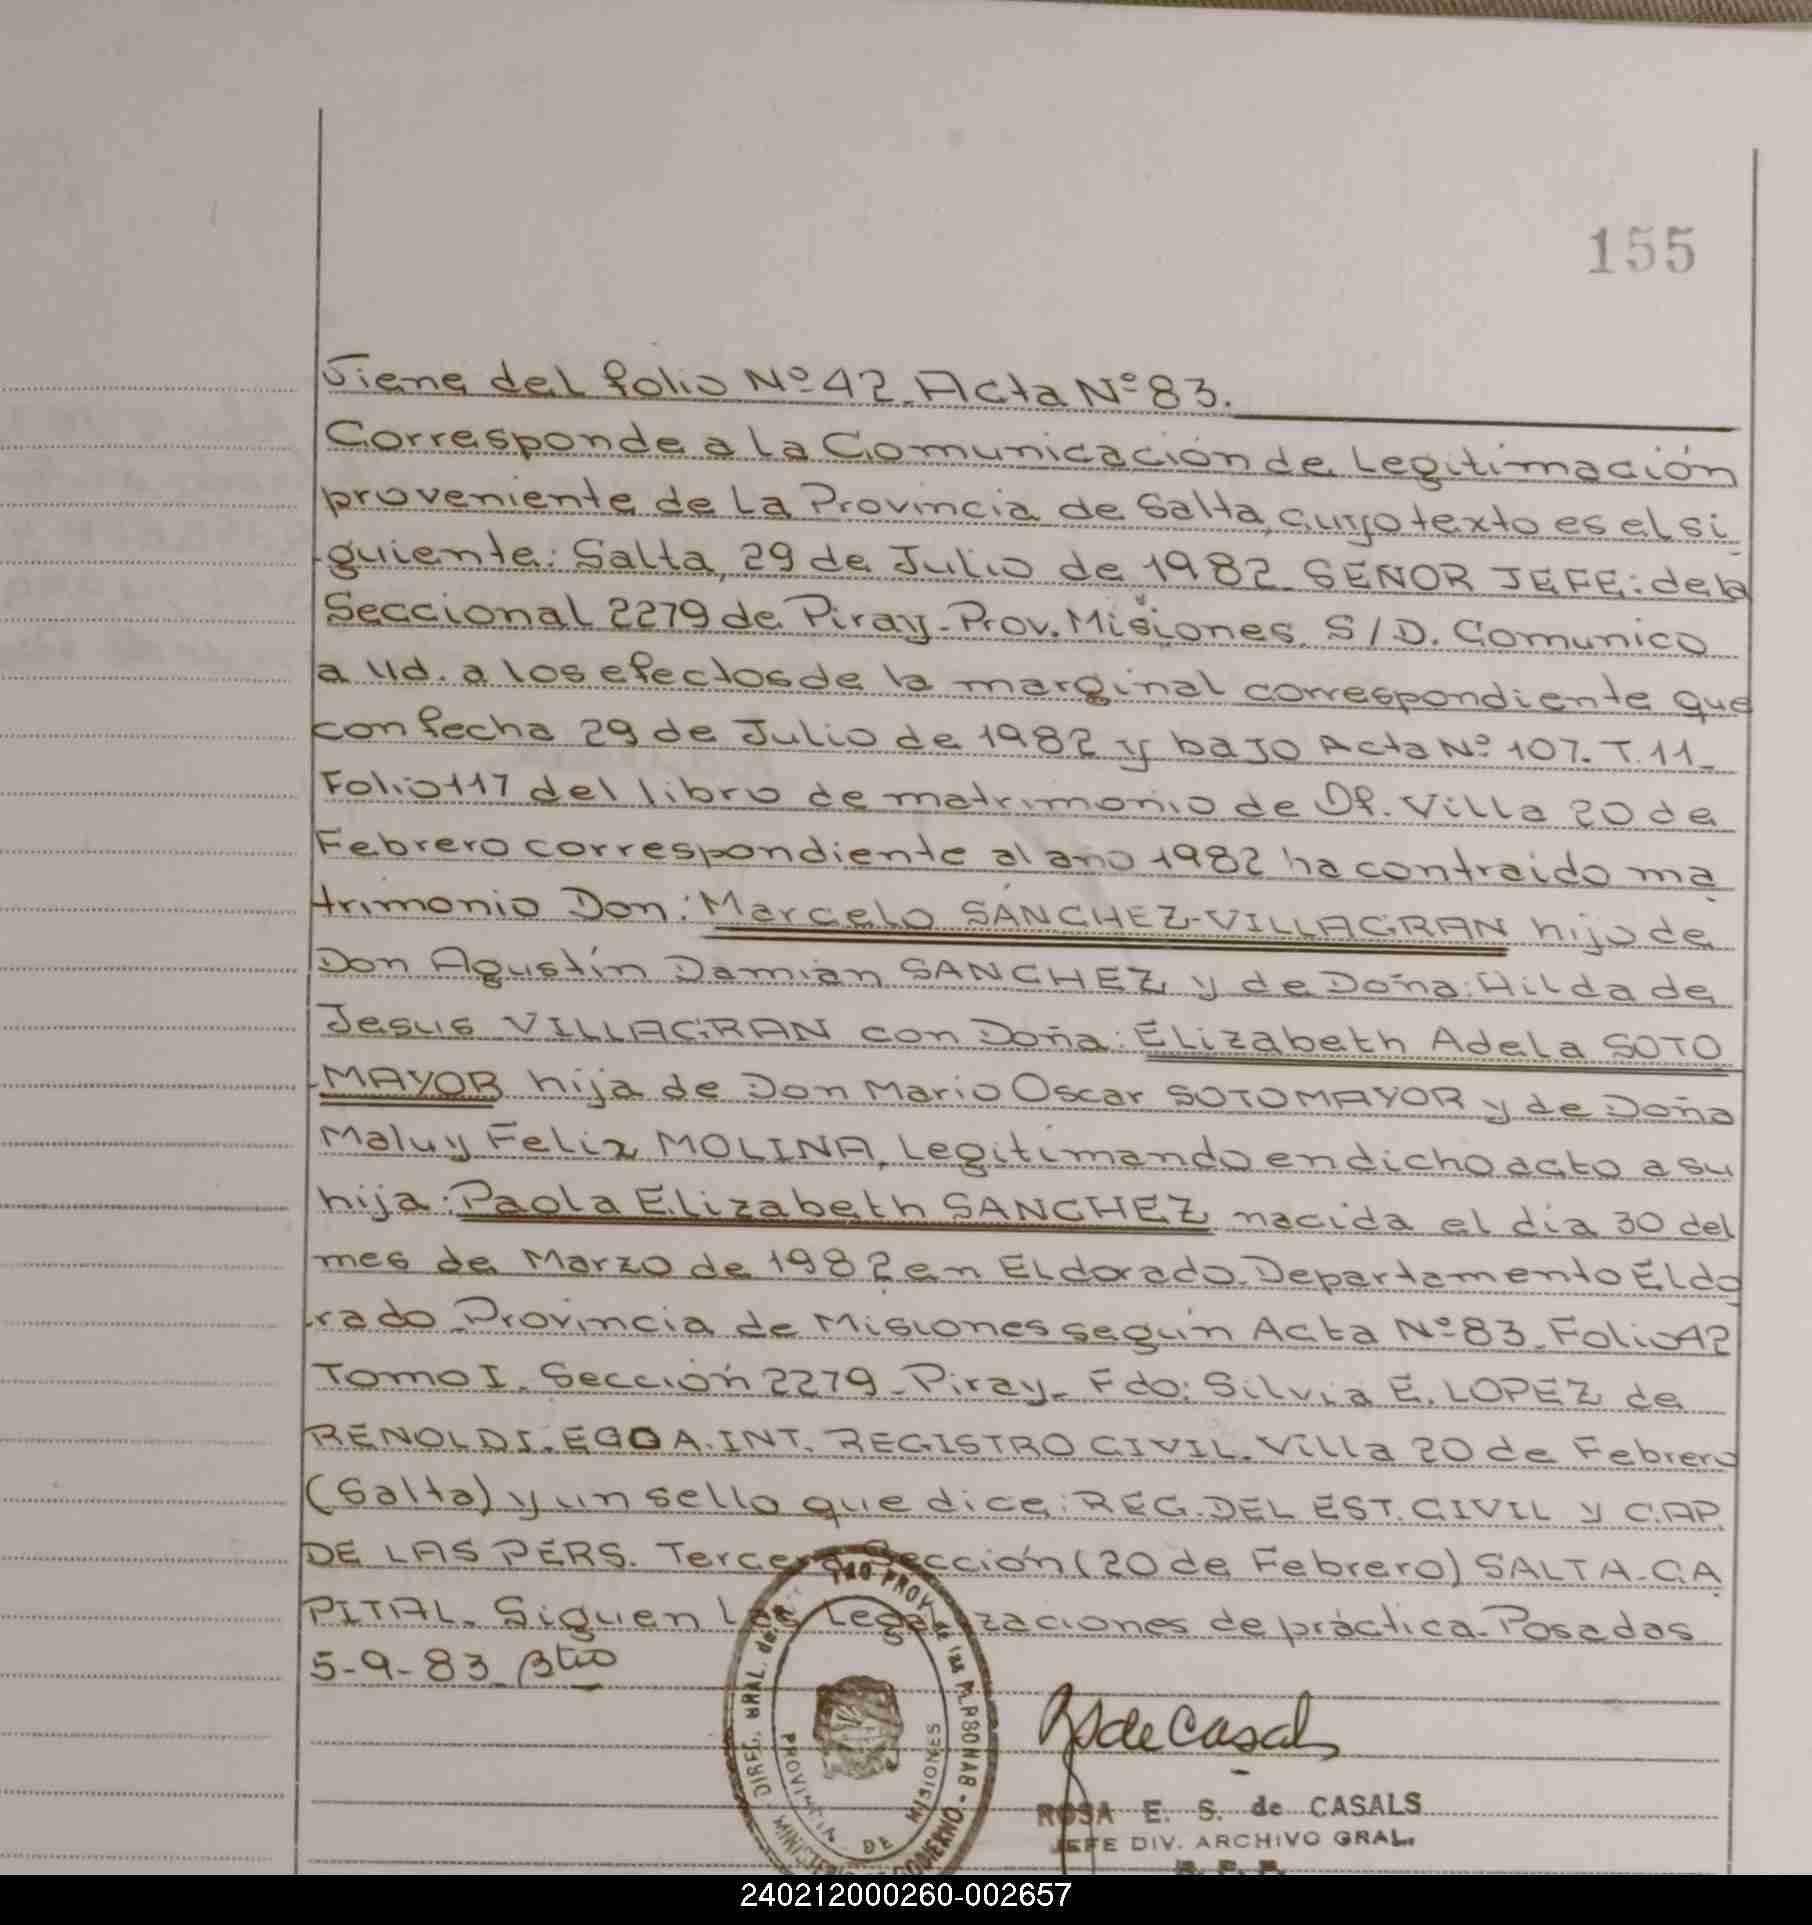 155
Viene del folio Nº 42. Acta Nº 83.
Corresponde a la Comunicación de Legitimación
proveniente de La Provincia de Salta, cuyo texto es el si
guiente: Salta, 29 de Julio de 1982. SEÑOR JEFE: de la
Seccional 2279 de Piray- Prov. Misiones. S/D. Comunico
a Ud. a los efectos de la marginal correspondiente que
con fecha 29 de Julio de 1982 y baJo Acta Nº 107. T. 11_
Folio 117 del libro de matrimonio de Of. Villa 20 de
Febrero correspondiente al año 1982 ha contraido ma
trimonio Don: Marcelo SÁNCHEZ-VILLAGRAN hijo de
Don Agustín Damián SANCHEZ y de Doña: Hilda de
Jesus VILLAGRAN con Doña: Elizabeth Adela SOTO
MAYOR hija de Don Mario Oscar SOTOMAYOR y de Doña
Maluy Feliz MOLINA, Legitimando en dicho acto a su
hija: Paola Elizabeth SANCHEZ nacida el día 30 del
mes de Marzo de 1982 en ELdorado. Departamento Eldo
rado Provincia de Misiones según Acta Nº 83. Folio 42
Tomo I. Sección 2279_ Piray_ Fdo: Silvia E. LOPEZ de
RENOLDI. EGDA. INT. REGISTRO CIVIL. Villa 20 de Febrero
(Salta) y un sello que dice: REG. DEL EST. CIVIL y CAP.
DE LAS PERS. Tercera Sección (20 de Febrero) SALTA-CA
PITAL. Siguen Las Legalizaciones de práctica. Posadas
5-9-83
DIREC. GRAL. de PROV. de las PERSONAS -
PROVINCIA DE MISIONES
MINISTERIO GOBIERNO
de Casals
ROSA E. S. de CASALS
JEFE DIV. ARCHIVO GRAL.
240212000260-002657